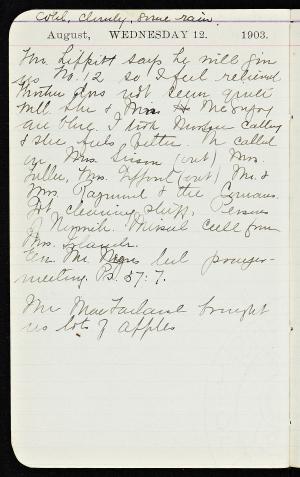 Cold, cloudy, some rain.
August, WEDNESDAY 12. 1903.
Mr. Tippitt says he will give
us No. 12 so I feel relieved
Mother does not seem quite
well. She & Mrs. McEnroy
are blue. I took Mother calling
& she feels better. We called
on Mrs. (out) Mrs.
Fuller, Mrs. Gifford (out) Mr. &
Mrs. Raymond & the
Got cleaning stuff,
of Nymith. Missed call from
Mrs.
Eve. Mr. led prayer-
meeting. Ps. 37:7.
Mr MacFarland brought
us lots of apples